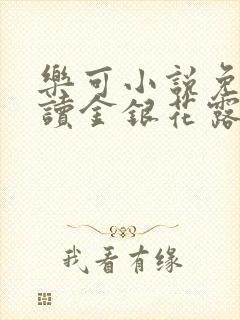 樂可小說免
讀金銀花露
我看有缘